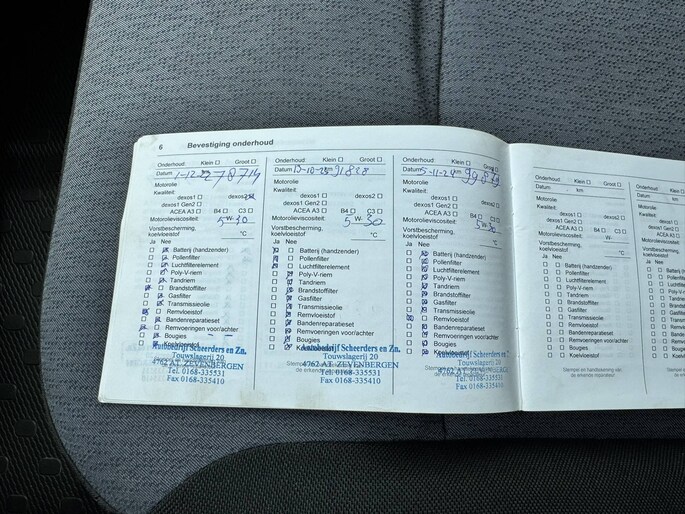 6 Bevestiging onderhoud
Onderhoud: Klein Groot
Datum 1-12-22 78714
Motorolie
Kwaliteit:
dexos1 dexos2
dexos1 Gen2
ACEA A3 B4 C3
Motorolieviscositeit: 5 W- 30
Vorstbescherming,
koelvloeistof °C
Ja Nee
Batterij (handzender)
Pollenfilter
Luchtfilterelement
Poly-V-riem
Tandriem
Brandstoffilter
Gasfilter
Transmissieolie
Remvloeistof
Bandenreparatieset
Remvoeringen voor/achter
Bougies
Koelvloeistof
Autobedrijf Scheerders en Zn.
Touwslagerij 20
4762 AT ZEVENBERGEN
Tel. 0168-335531
Fax 0168-335410
Onderhoud: Klein Groot
Datum 13-10-23 91828
Motorolie
Kwaliteit:
dexos1 dexos2
dexos1 Gen2
ACEA A3 B4 C3
Motorolieviscositeit: 5 W- 30
Vorstbescherming,
koelvloeistof °C
Ja Nee
Batterij (handzender)
Pollenfilter
Luchtfilterelement
Poly-V-riem
Tandriem
Brandstoffilter
Gasfilter
Transmissieolie
Remvloeistof
Bandenreparatieset
Remvoeringen voor/achter
Bougies
Koelvloeistof
Autobedrijf Scheerders en Zn.
Touwslagerij 20
4762 AT ZEVENBERGEN
Tel. 0168-335531
Fax 0168-335410
Onderhoud: Klein Groot
Datum 5-11-24 km
Motorolie
Kwaliteit:
dexos1 dexos2
dexos1 Gen2
ACEA A3 B4 C3
Motorolieviscositeit: 5 W- 30
Vorstbescherming,
koelvloeistof °C
Ja Nee
Batterij (handzender)
Pollenfilter
Luchtfilterelement
Poly-V-riem
Tandriem
Brandstoffilter
Gasfilter
Transmissieolie
Remvloeistof
Bandenreparatieset
Remvoeringen voor/achter
Bougies
Koelvloeistof
Autobedrijf Scheerders en Zn.
Touwslagerij 20
4762 AT ZEVENBERGEN
Tel. 0168-335531
Fax 0168-335410
Onderhoud: Klein Groot
Datum km
Motorolie
Kwaliteit:
dexos1 dexos2
dexos1 Gen2
ACEA A3 B4 C3
Motorolieviscositeit: W-
Vorstbescherming,
koelvloeistof °C
Ja Nee
Batterij (handzender)
Pollenfilter
Luchtfilterelement
Poly-V-riem
Tandriem
Brandstoffilter
Gasfilter
Transmissieolie
Remvloeistof
Bandenreparatieset
Remvoeringen voor/achter
Bougies
Koelvloeistof
Stempel en handtekening van
de erkende reparateur
Onderhoud:
Datum
Motorolie
Kwaliteit:
dexos1
dexos1 Gen2
ACEA A3
Motorolieviscositeit:
Vorstbescherming,
koelvloeistof
Ja Nee
Batterij
Pollenfilter
Poly-V-riem
Tandriem
Gasfilter
Bougies